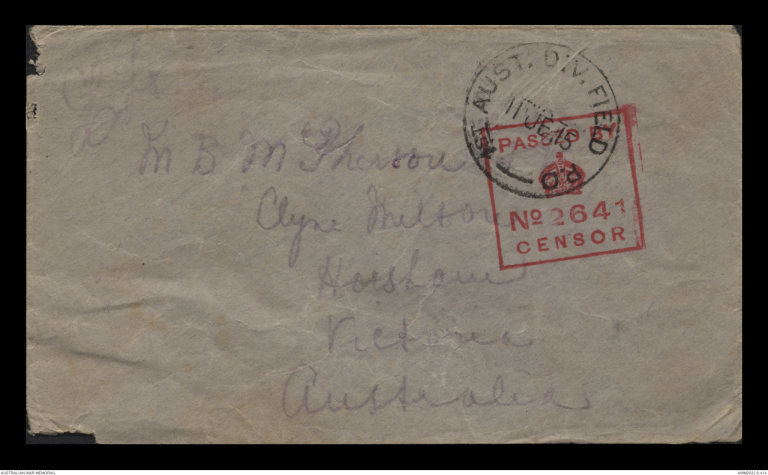 1ST AUST. DIV. FIELD P.O
11 JE 15
PASSED BY
Nº 2641
CENSOR
M B McPherson
Clyne Milton
Horsham
Victoria
Australia
AUSTRALIAN WAR MEMORIAL